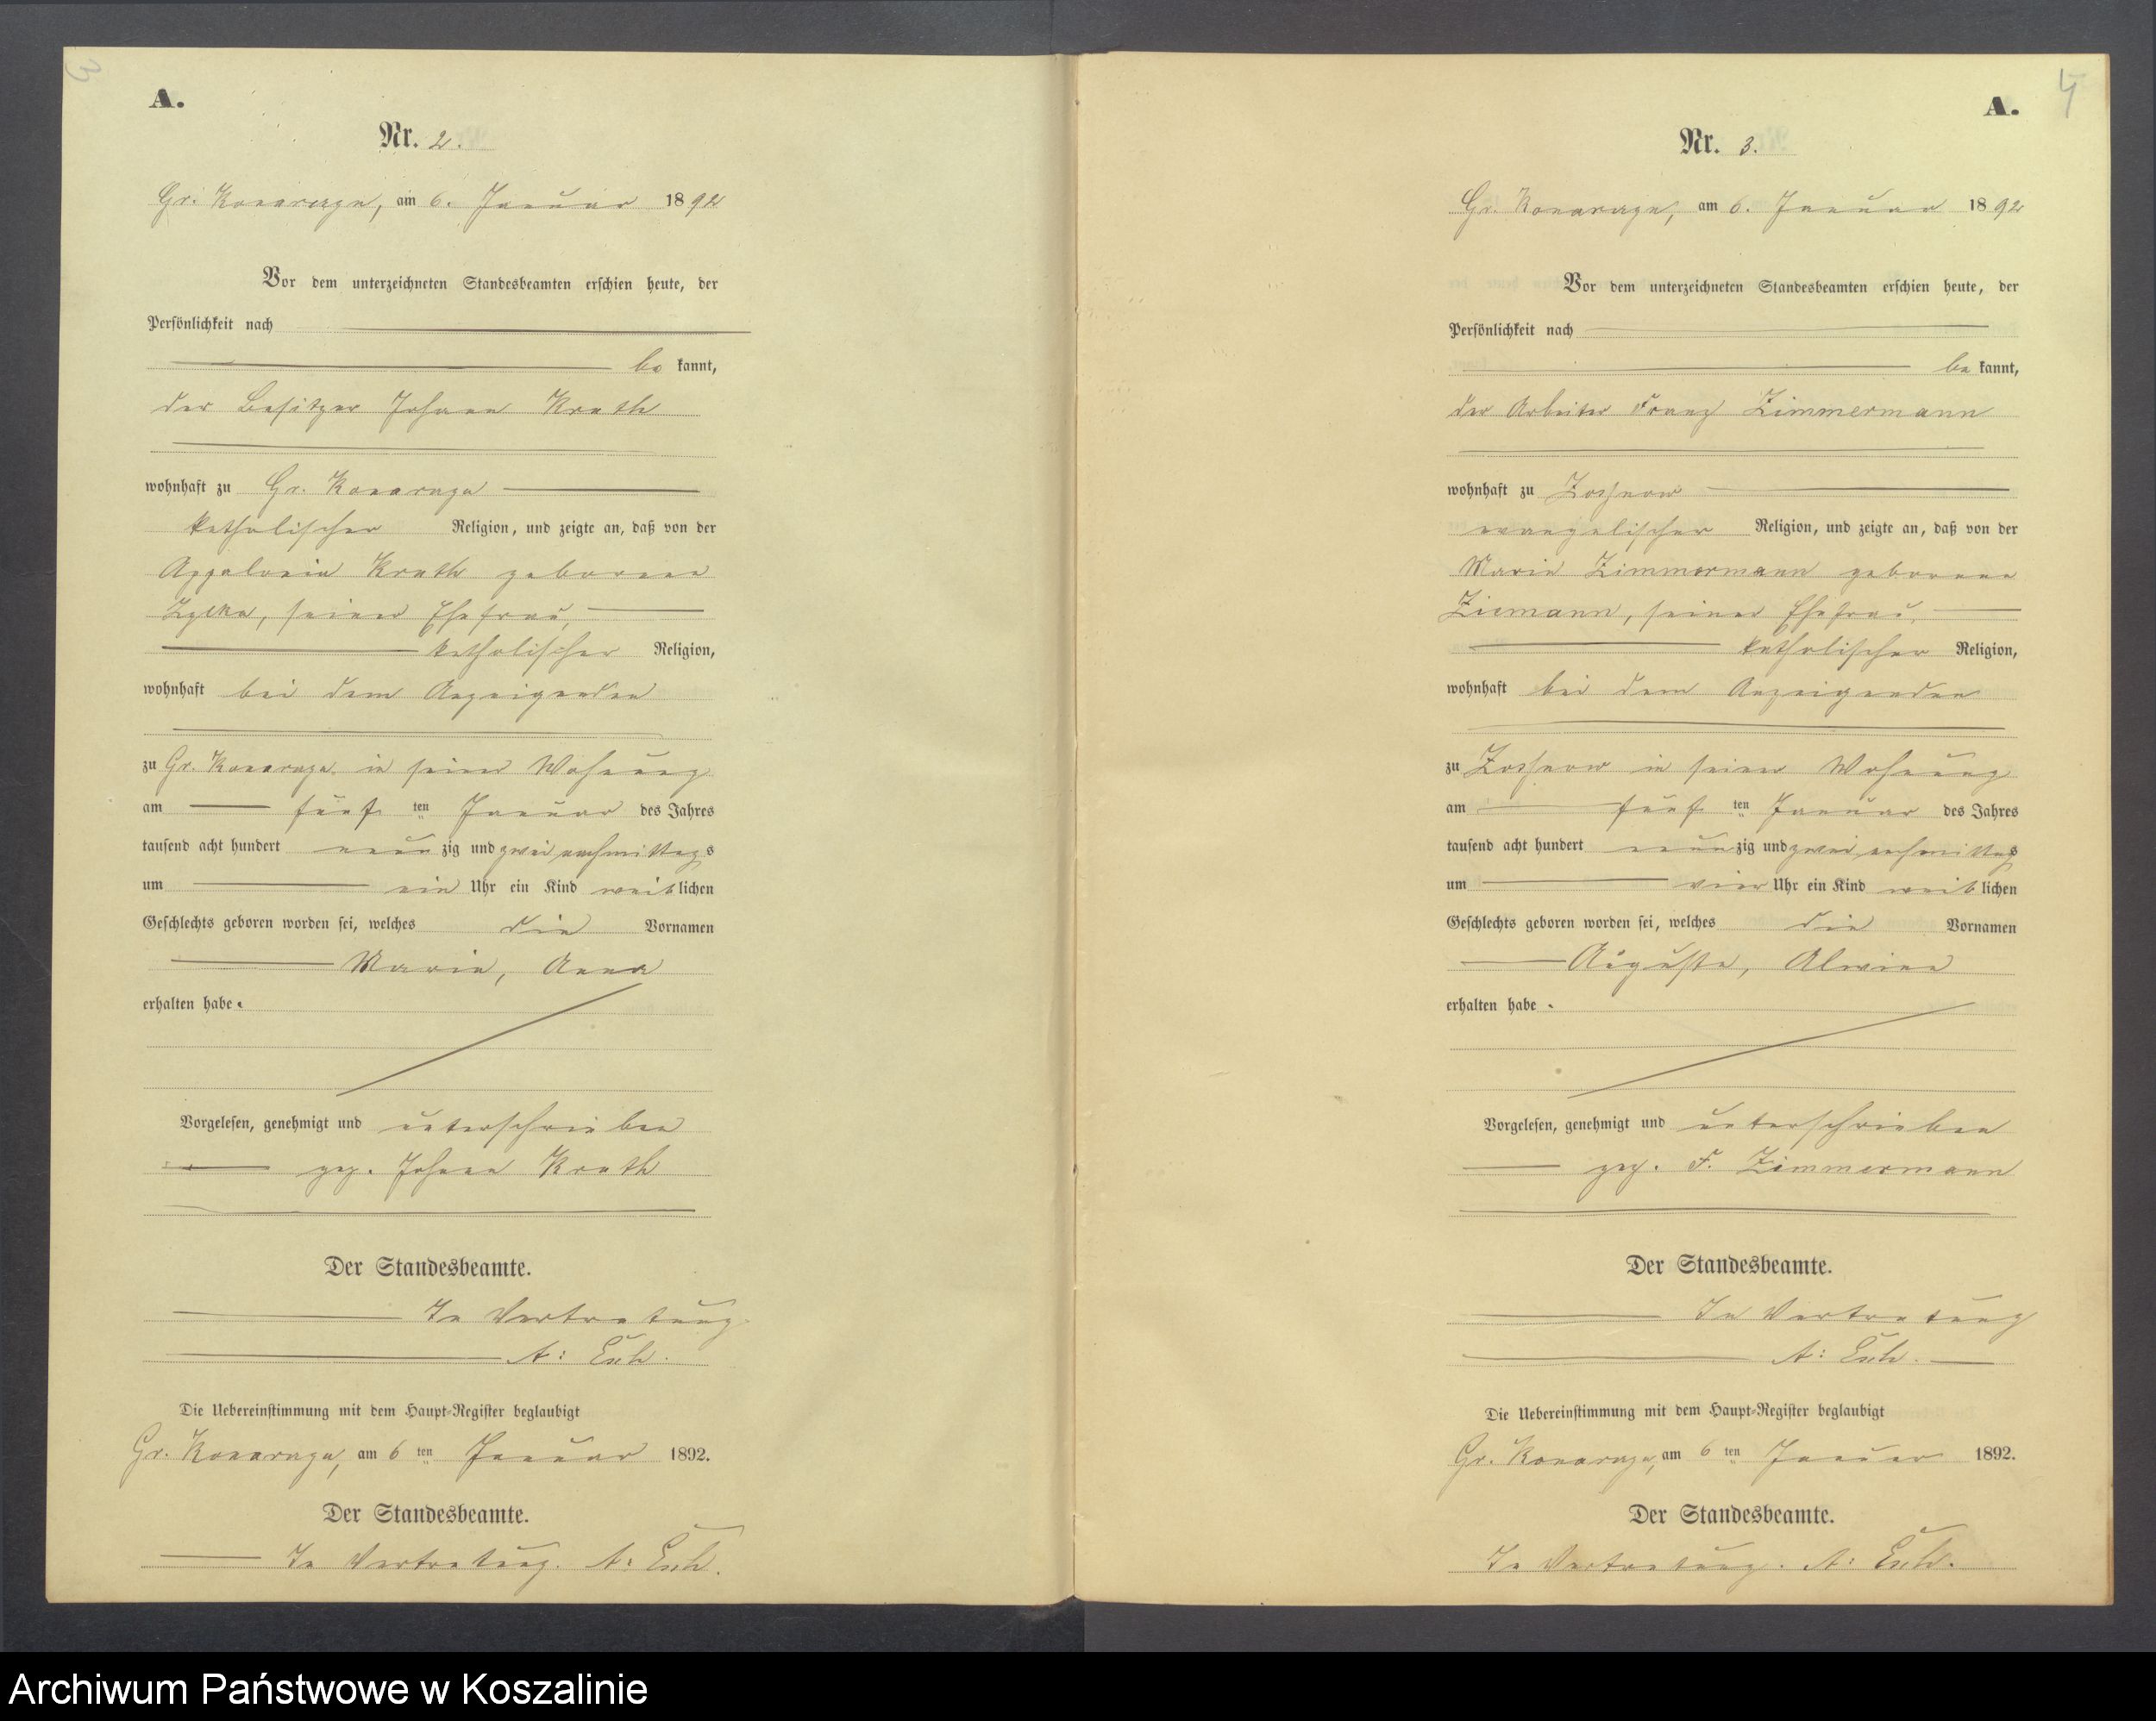 3
A.
Nr. 2.
Gr. Konarzyn, am 6. Januar 1892
Vor dem unterzeichneten Standesbeamten erschien heute, der
Persönlichkeit nach
be kannt,
der Besitzer Johann Knuth
wohnhaft zu Gr. Konarzyn
katholischer Religion, und zeigte an, daß von der
Appolonia Knuth geborene
seiner Ehefrau,
katholischer Religion,
wohnhaft bei dem Anzeigenden
zu Gr. Konarzyn in seiner Wohnung
am fünf ten Januar des Jahres
tausend acht hundert neun zig und zwei nachmittags
um ein Uhr ein Kind weib lichen
Geschlechts geboren worden sei, welches die Vornamen
Maria, Anna
erhalten habe.
Vorgelesen, genehmigt und unterschrieben
gez. Johann Knuth
Der Standesbeamte.
In Vertretung
A:
Die Uebereinstimmung mit dem Haupt-Register beglaubigt
Gr. Konarzyn, am 6 ten Januar 1892.
Der Standesbeamte.
In Vertretung. A:
4
A.
Nr. 3.
Gr. Konarzyn, am 6. Januar 1892
Vor dem unterzeichneten Standesbeamten erschien heute, der
Persönlichkeit nach
be kannt,
der Arbeiter Franz Zimmermann
wohnhaft zu
evangelischer Religion, und zeigte an, daß von der
Marie Zimmermann geborene
Ziemann, seiner Ehefrau,
katholischer Religion,
wohnhaft bei dem Anzeigenden
zu in seiner Wohnung
am fünf ten Januar des Jahres
tausend acht hundert neun zig und zwei nachmittags
um vier Uhr ein Kind weib lichen
Geschlechts geboren worden sei, welches die Vornamen
Auguste, Alwine
erhalten habe.
Vorgelesen, genehmigt und unterschrieben
gez. F. Zimmermann
Der Standesbeamte.
In Vertretung
A:
Die Uebereinstimmung mit dem Haupt-Register beglaubigt
Gr. Konarzyn, am 6 ten Januar 1892.
Der Standesbeamte.
In Vertretung. A:
Archiwum Państwowe w Koszalinie